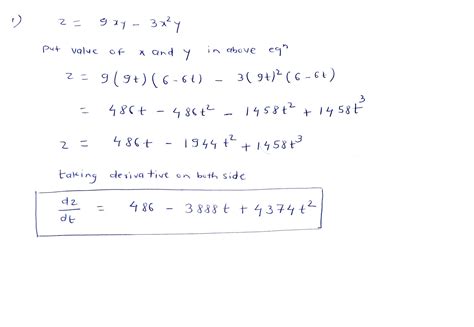 1) z = 9xy - 3x²y
Put value of x and y in above eqⁿ
z = 9(9t)(6-6t) - 3(9t)²(6-6t)
= 486t - 486t² - 1458t² + 1458t³
z = 486t - 1944t² + 1458t³
taking derivative on both side
dz/dt = 486 - 3888t + 4374t²